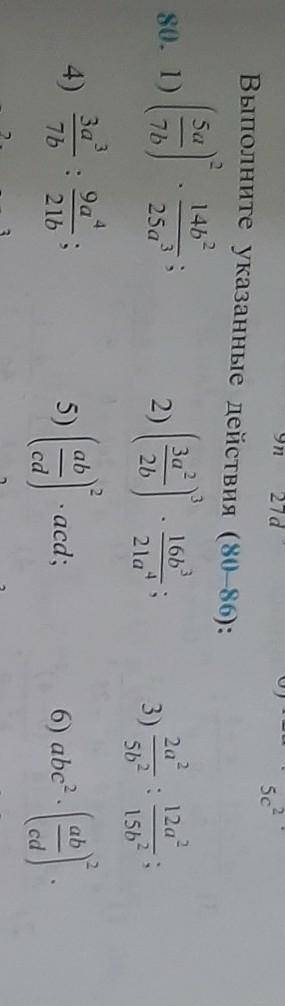 9n 27d 5c²
Выполните указанные действия (80–86):
80. 1) (5a/7b)² · 14b²/25a³; 2) (3a²/2b)³ · 16b³/21a⁴; 3) 2a²/5b² : 12a²/15b²;
4) 3a³/7b : 9a⁴/21b; 5) (ab/cd)² · acd; 6) abc² · (ab/cd)².